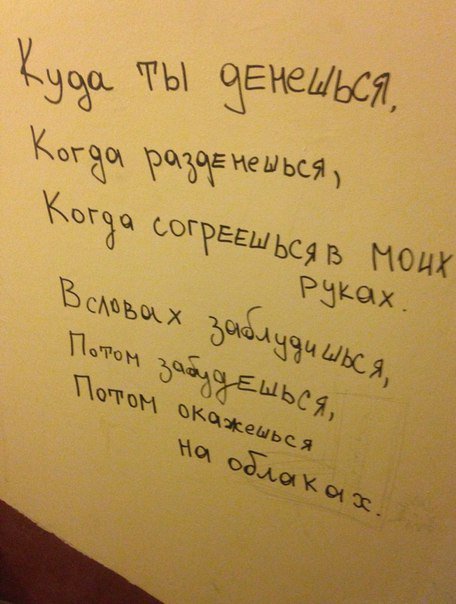 Куда ты денешься,
Когда разденешься,
Когда согреешься в моих
руках.
В словах заблудишься,
Потом забудешься,
Потом окажешься
на облаках.